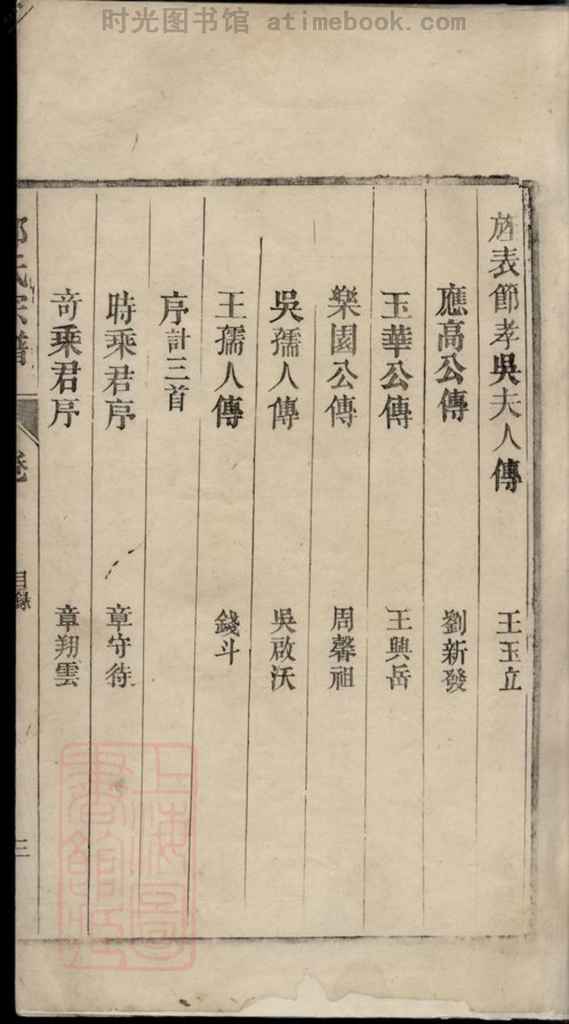 时光图书馆 atimebook.com
旌表節孝吳夫人傳 王玉立
應高公傳 劉新發
玉華公傳 王興岳
樂園公傳 周馨祖
吳孺人傳 吳啟沃
王孺人傳 錢斗
序計三首
時乘君序 章守待
奇乘君序 章翔雲
氏宗譜 卷 目錄 三
上海圖書館藏